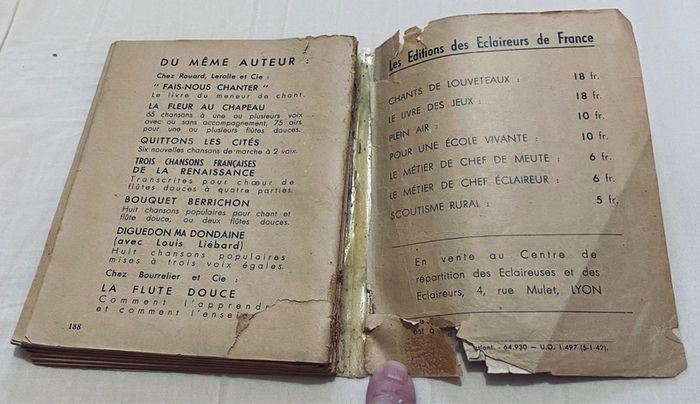 DU MÊME AUTEUR :
Chez Rouard, Lerolle et Cie :
" FAIS-NOUS CHANTER "
Le livre du meneur de chant.
LA FLEUR AU CHAPEAU
65 chansons à une ou plusieurs voix
avec ou sans accompagnement, 75 airs
pour une ou plusieurs flûtes douces.
QUITTONS LES CITÉS
Six nouvelles chansons de marche à 2 voix.
TROIS CHANSONS FRANÇAISES
DE LA RENAISSANCE
Transcrites pour chœur de
flûtes douces à quatre parties.
BOUQUET BERRICHON
Huit chansons populaires pour chant et
flûte douce, ou deux flûtes douces.
DIGUEDON MA DONDAINE
(avec Louis Liébard)
Huit chansons populaires
mises à trois voix égales.
Chez Bourrelier et Cie :
LA FLUTE DOUCE
Comment l'apprend
et comment l'ensei
188
Les Editions des Eclaireurs de France
CHANTS DE LOUVETEAUX : 18 fr.
LE LIVRE DES JEUX : 18 fr.
PLEIN AIR : 10 fr.
POUR UNE ÉCOLE VIVANTE : 10 fr.
LE MÉTIER DE CHEF DE MEUTE : 6 fr.
LE MÉTIER DE CHEF ÉCLAIREUR : 6 fr.
SCOUTISME RURAL : 5 fr.
En vente au Centre de
répartition des Eclaireuses et des
Eclaireurs, 4, rue Mulet, LYON
- 64.930 - U.O. 1.497 (5-1-42).